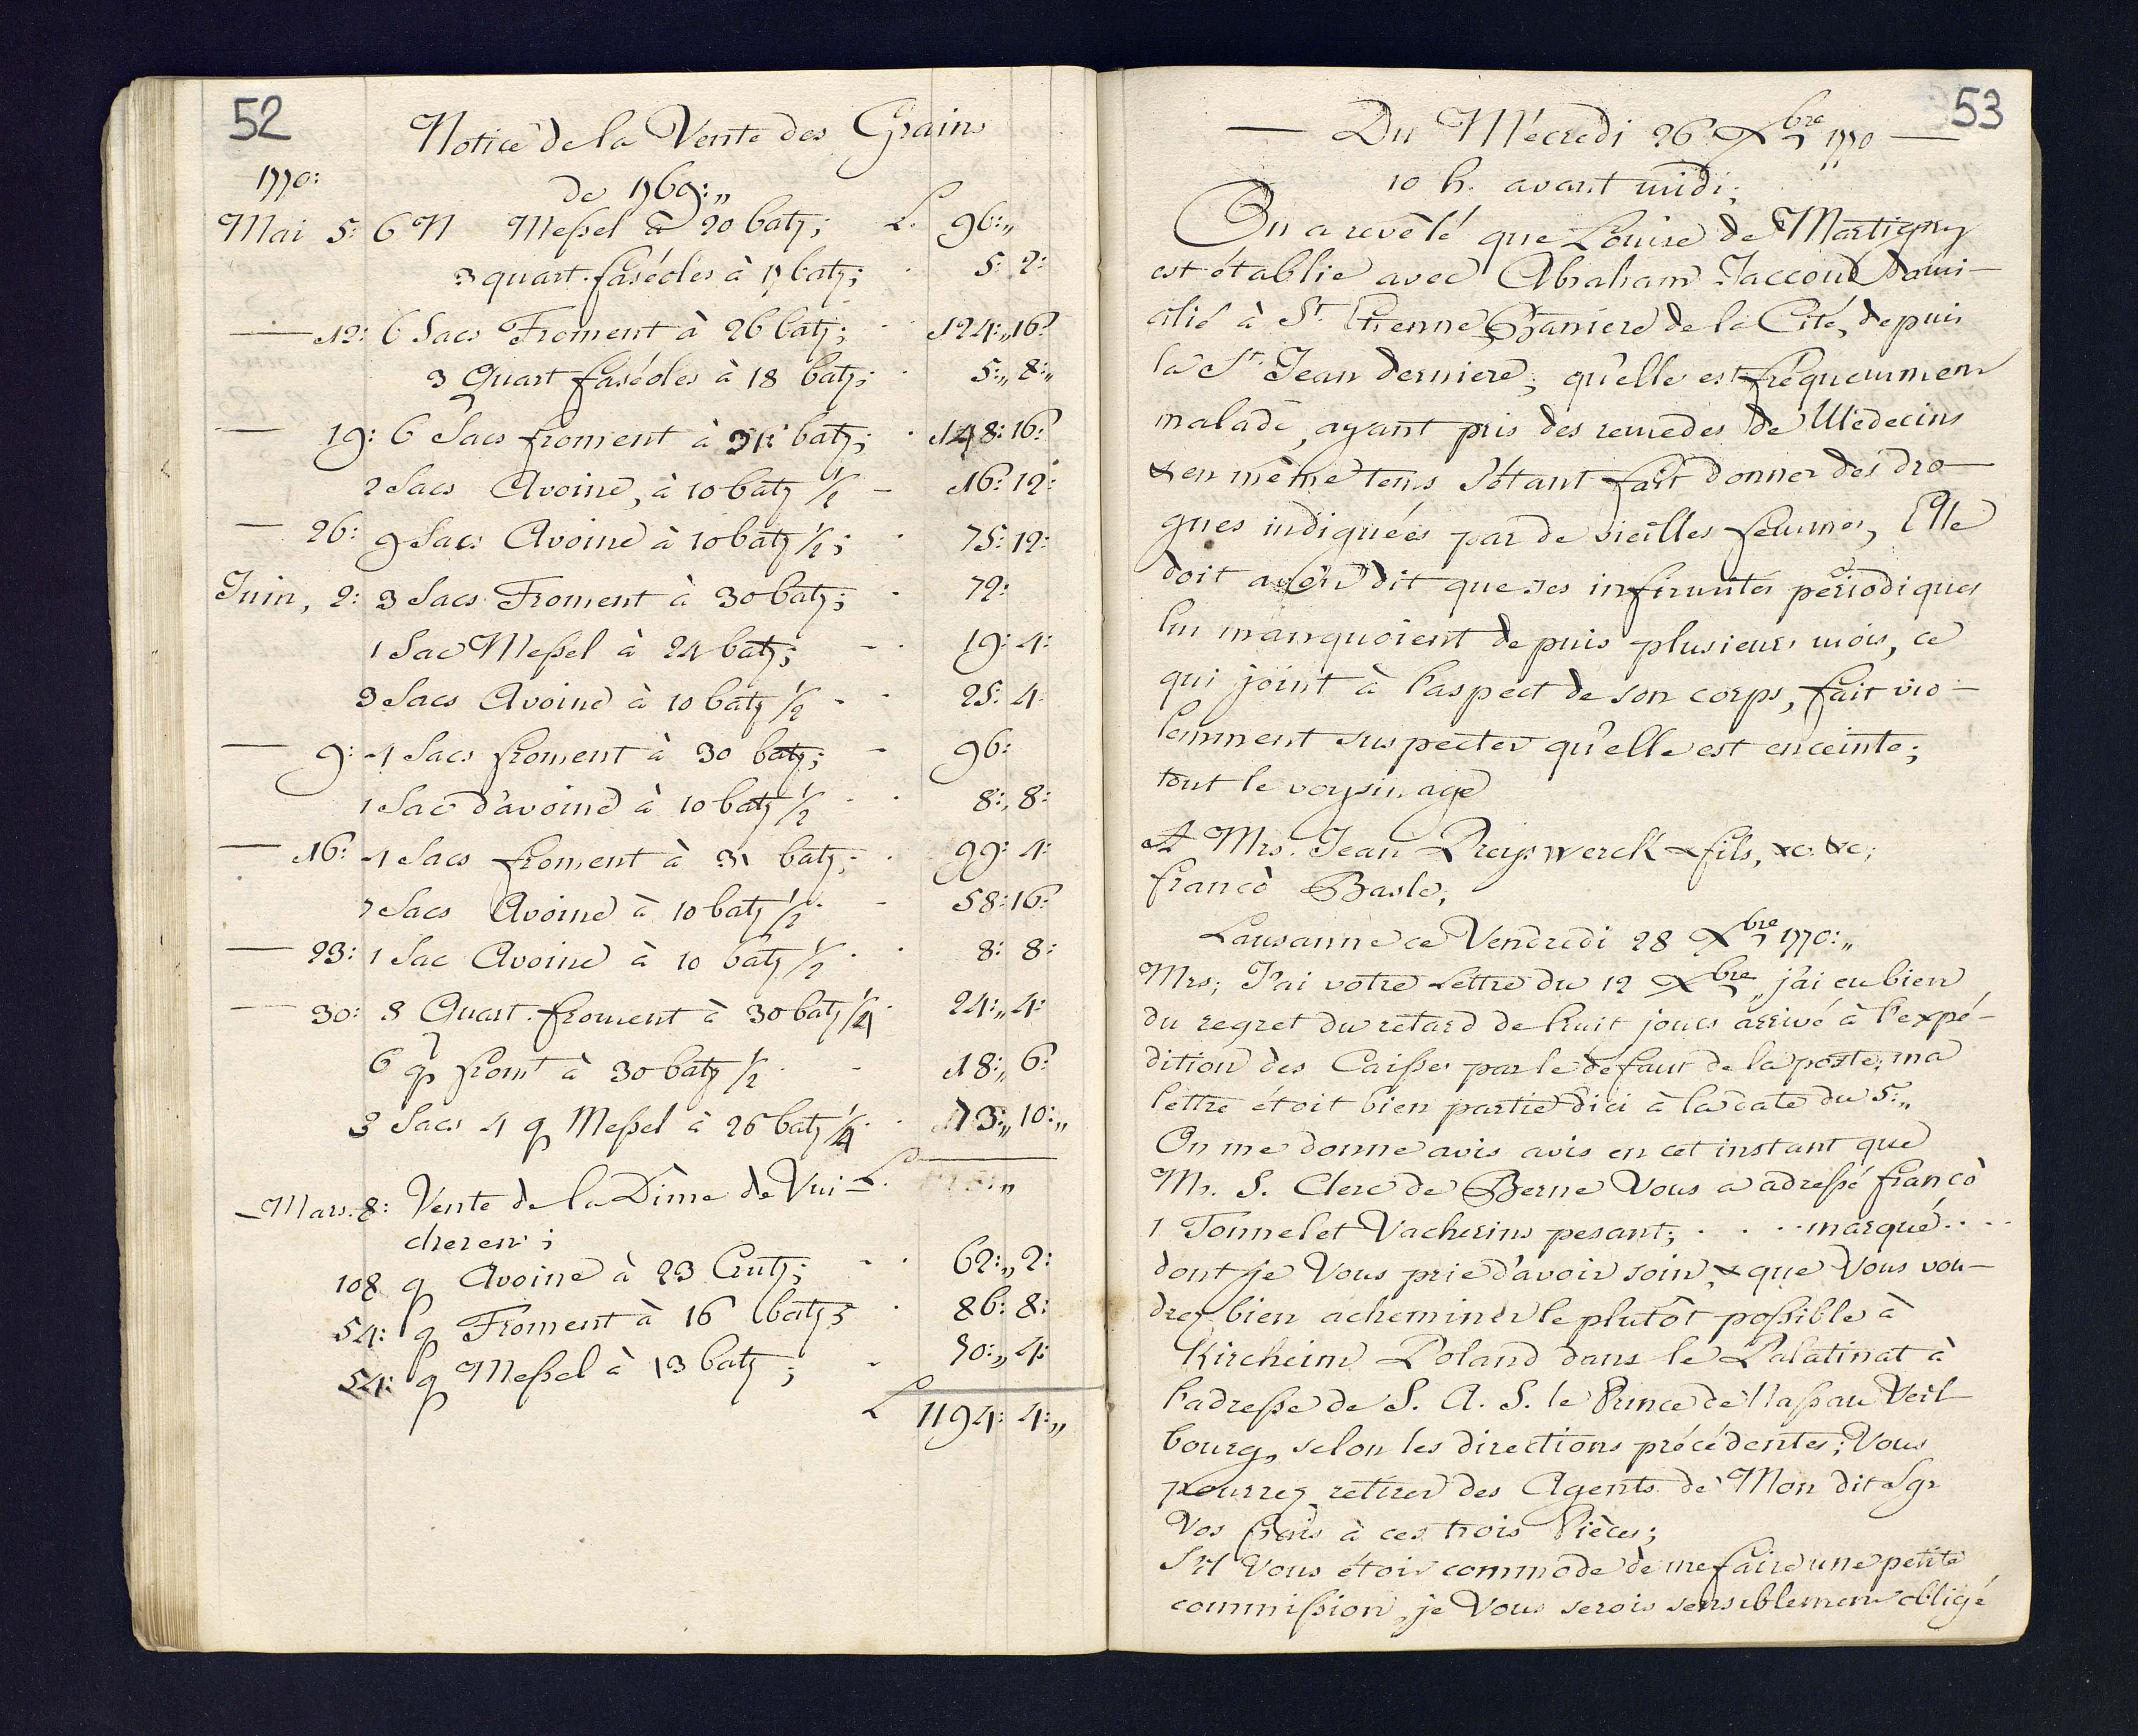 52
Notice de la Vente des Grains
1770:
de 1769:„
Mai 5: 6 Meßel à 20 batz; L. 96:„
3 quart. faséoles à 17 batz; 5: 2:
— 12: 6 Sacs Froment à 26 batz; 124:„ 16:
3 Quart faséoles à 18 batz; 5:„ 8:„
— 19: 6 Sacs froment à 31 batz; 148: 16:
2 Sacs Avoine, à 10 batz ½ — 16: 12:
— 26: 9 Sacs Avoine à 10 batz ½; 75: 12:
Juin, 2: 3 Sacs Froment à 30 batz; 72:
1 Sac Meßel à 24 batz; 19: 4:
3 Sacs Avoine à 10 batz ½ 25: 4:
— 9: 4 Sacs froment à 30 batz; 96:
1 Sac d'avoine à 10 batz ½ 8:, 8:
— 16: 4 Sacs froment à 31 batz; 99: 4:
7 Sacs Avoine à 10 batz ½ 58: 16:
— 23: 1 Sac Avoine à 10 batz ½ 8: 8:
— 30: 8 Quart. froment à 30 batz ¼ 24:„ 4:
6 q fromt à 30 batz ½ 18:„ 6:
3 Sacs 4 q Meßel à 26 batz ¼ 73:„ 10:„
L.
— Mars. 8: Vente de la Dime de Vui-
cherens;
108 q Avoine à 23 Crutz; 62:„ 2:
54: q Froment à 16 batz; 86: 8:
54: q Meßel à 13 batz; 70:„ 4:
L 1194: 4:„
53
— Du Mécredi 26 Xbre 1770 —
10 h. avant midi;
On a revélé que Louise de Martigny
est établie avec Abraham Jaccoud domi-
cilié à St. Etienne Baniere de la Cité, depuis
la St. Jean derniere; qu'elle est fréquemment
malade, ayant pris des remedes de Médecins
& en même tems s'étant fait donner des dro-
gues indiquées par de vieilles femmes, Elle
doit avoir dit que ses infirmités périodiques
lui manquoient depuis plusieurs mois, ce
qui joint à l'aspect de son corps, fait vio-
lemment suspecter qu'elle est enceinte;
tout le voysinage
A Mrs. Jean Preyswerck & fils, &c. &c;
francò Basle;
Lausanne ce Vendredi 28 Xbre 1770:„
Mrs; J'ai votre Lettre du 12 Xbre„ j'ai eu bien
du regret du retard de huit jours arrivé à l'expé-
dition des Caisses par le défaut de la poste; ma
lettre étoit bien partie d'ici à la date du 5:„
On me donne avis avis en cet instant que
Mr. S. Clerc de Berne Vous a adreßé francò
1 Tonnelet Vacherins pesant; . . . . marqué . . . .
dont je Vous prie d'avoir soin, & que Vous vou-
drez bien acheminer le plutôt poßible à
Kircheim Poland dans le Palatinat à
l'adreße de S. A. S. le Prince de Naßau Veil
bourg, selon les directions précédentes; Vous
pourrez retirer des Agents de Mon dit Sgr
Vos frais à ces trois Pièces;
S'il Vous étoit commode de me faire une petite
commißion, je Vous serois sensiblement obligé